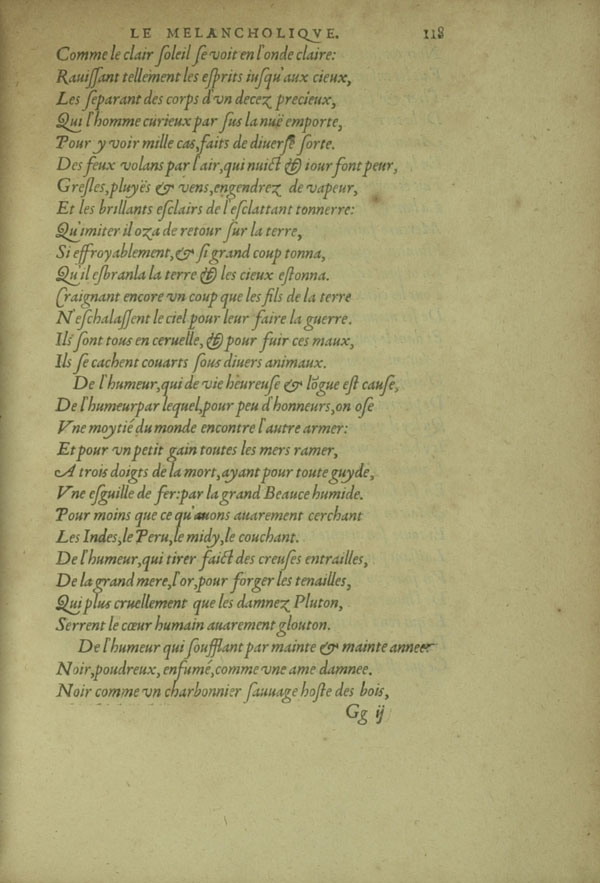 LE MELANCHOLIQVE. 118
Comme le clair ſoleil ſe voit en l'onde claire:
Rauiſſant tellement les eſprits iuſqu'aux cieux,
Les ſeparant des corps d'vn decez precieux,
Qui l'homme curieux par ſus la nuë emporte,
Pour y voir mille cas, faits de diuerſe ſorte.
Des feux volans par l'air, qui nuict & iour font peur,
Greſles, pluyës & vens, engendrez de vapeur,
Et les brillants eſclairs de l'eſclattant tonnerre:
Qu'imiter il oza de retour ſur la terre,
Si effroyablement, & ſi grand coup tonna,
Qu'il eſbranla la terre & les cieux eſtonna.
Craignant encore vn coup que les fils de la terre
N'eſchalaſſent le ciel pour leur faire la guerre.
Ils ſont tous en ceruelle, & pour fuir ces maux,
Ils ſe cachent couarts ſous diuers animaux.
De l'humeur, qui de vie hëureuſe & lõgue eſt cauſe,
De l'humeur par lequel, pour peu d'honneurs, on oſe
Vne moytié du monde encontre l'autre armer:
Et pour vn petit gain toutes les mers ramer,
A trois doigts de la mort, ayant pour toute guyde,
Vne eſguille de fer: par la grand Beauce humide.
Pour moins que ce qu'auons auarement cerchant
Les Indes, le Peru, le midy, le couchant.
De l'humeur, qui tirer faict des creuſes entrailles,
De la grand mere, l'or, pour forger les tenailles,
Qui plus cruellement que les damnez Pluton,
Serrent le cœur humain auarement glouton.
De l'humeur qui ſoufflant par mainte & mainte anneer
Noir, poudreux, enfumé, comme vne ame damnee.
Noir comme vn charbonnier ſauuage hoſte des bois,
Gg ij